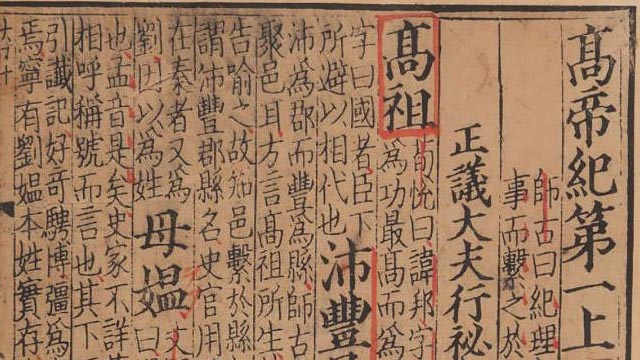 髙帝紀第一上
師古曰紀理
事而繫之於
正議大夫行祕
髙祖
荀悅曰諱邦字
為功最髙而為
字曰國者臣下
所避以相代也
沛豐
沛為郡而豐為縣師古
聚邑耳方言髙祖所生
告喻之故知邑繫於縣
謂沛豐郡縣名史官用
在秦者又為
劉因以為姓
母媼
文
也孟音是矣史家不詳
相呼稱號而言也其下
引讖記好奇騁博彊為
焉寧有劉媼本姓實存